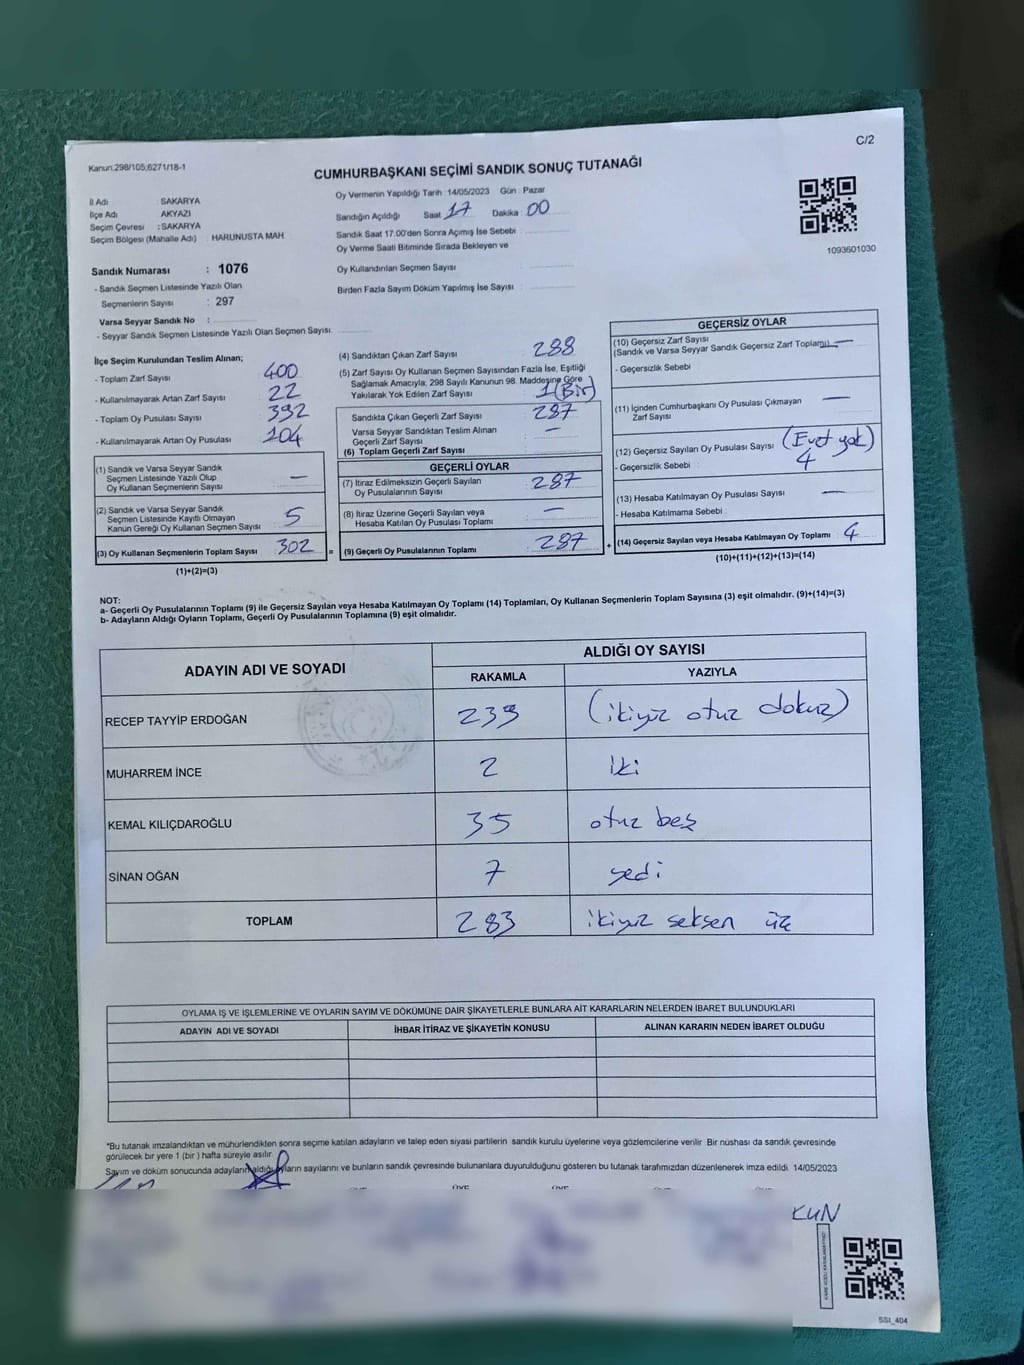 C/2
Kanun:298/105;6271/18-1
CUMHURBAŞKANI SEÇİMİ SANDIK SONUÇ TUTANAĞI
İl Adı SAKARYA
İlçe Adı AKYAZI
Seçim Çevresi : SAKARYA
Seçim Bölgesi (Mahalle Adı) : HARUNUSTA MAH.
Oy Vermenin Yapıldığı Tarih : 14/05/2023 Gün : Pazar
Sandığın Açıldığı Saat 17 Dakika : 00
Sandık Saat 17.00'den Sonra Açımış İse Sebebi :
Oy Verme Saati Bitiminde Sırada Bekleyen ve
Oy Kullandırılan Seçmen Sayısı :
Birden Fazla Sayım Döküm Yapılmış İse Sayısı :
1093601030
Sandık Numarası : 1076
- Sandık Seçmen Listesinde Yazılı Olan
Seçmenlerin Sayısı : 297
Varsa Seyyar Sandık No :
- Seyyar Sandık Seçmen Listesinde Yazılı Olan Seçmen Sayısı:
İlçe Seçim Kurulundan Teslim Alınan;
- Toplam Zarf Sayısı 400
- Kullanılmayarak Artan Zarf Sayısı 22
- Toplam Oy Pusulası Sayısı 392
- Kullanılmayarak Artan Oy Pusulası 104
(1) Sandık ve Varsa Seyyar Sandık
Seçmen Listesinde Yazılı Olup
Oy Kullanan Seçmenlerin Sayısı —
(2) Sandık ve Varsa Seyyar Sandık
Seçmen Listesinde Kayıtlı Olmayan
Kanun Gereği Oy Kullanan Seçmen Sayısı 5
(3) Oy Kullanan Seçmenlerin Toplam Sayısı 302 =
(1)+(2)=(3)
(4) Sandıktan Çıkan Zarf Sayısı 288
(5) Zarf Sayısı Oy Kullanan Seçmen Sayısından Fazla İse, Eşitliği
Sağlamak Amacıyla; 298 Sayılı Kanunun 98. Maddesine Göre
Yakılarak Yok Edilen Zarf Sayısı 1 (Bir)
Sandıkta Çıkan Geçerli Zarf Sayısı 287
Varsa Seyyar Sandıktan Teslim Alınan
Geçerli Zarf Sayısı —
(6) Toplam Geçerli Zarf Sayısı
GEÇERLİ OYLAR
(7) İtiraz Edilmeksizin Geçerli Sayılan
Oy Pusulalarının Sayısı 287
(8) İtiraz Üzerine Geçerli Sayılan veya
Hesaba Katılan Oy Pusulası Toplamı —
(9) Geçerli Oy Pusulalarının Toplamı 287 +
GEÇERSİZ OYLAR
(10) Geçersiz Zarf Sayısı
(Sandık ve Varsa Seyyar Sandık Geçersiz Zarf Toplamı) —
- Geçersizlik Sebebi
(11) İçinden Cumhurbaşkanı Oy Pusulası Çıkmayan
Zarf Sayısı —
(12) Geçersiz Sayılan Oy Pusulası Sayısı (Evet yok)
- Geçersizlik Sebebi : 4
(13) Hesaba Katılmayan Oy Pusulası Sayısı —
- Hesaba Katılmama Sebebi :
(14) Geçersiz Sayılan veya Hesaba Katılmayan Oy Toplamı 4
(10)+(11)+(12)+(13)=(14)
NOT:
a- Geçerli Oy Pusulalarının Toplamı (9) ile Geçersiz Sayılan veya Hesaba Katılmayan Oy Toplamı (14) Toplamları, Oy Kullanan Seçmenlerin Toplam Sayısına (3) eşit olmalıdır. (9)+(14)=(3)
b- Adayların Aldığı Oyların Toplamı, Geçerli Oy Pusulalarının Toplamına (9) eşit olmalıdır.
ADAYIN ADI VE SOYADI ALDIĞI OY SAYISI
RAKAMLA YAZIYLA
RECEP TAYYİP ERDOĞAN 239 (ikiyüz otuz dokuz)
MUHARREM İNCE 2 iki
KEMAL KILIÇDAROĞLU 35 otuz beş
SİNAN OĞAN 7 yedi
TOPLAM 283 ikiyüz seksen üç
OYLAMA İŞ VE İŞLEMLERİNE VE OYLARIN SAYIM VE DÖKÜMÜNE DAİR ŞİKAYETLERLE BUNLARA AİT KARARLARIN NELERDEN İBARET BULUNDUKLARI
ADAYIN ADI VE SOYADI İHBAR İTİRAZ VE ŞİKAYETİN KONUSU ALINAN KARARIN NEDEN İBARET OLDUĞU
*Bu tutanak imzalandıktan ve mühürlendikten sonra seçime katılan adayların ve talep eden siyasi partilerin sandık kurulu üyelerine veya gözlemcilerine verilir. Bir nüshası da sandık çevresinde
görülecek bir yere 1 (bir) hafta süreyle asılır.
Sayım ve döküm sonucunda adayların aldığı oyların sayılarını ve bunların sandık çevresinde bulunanlara duyurulduğunu gösteren bu tutanak tarafımızdan düzenlenerek imza edildi. 14/05/2023
KUN
SSI_404